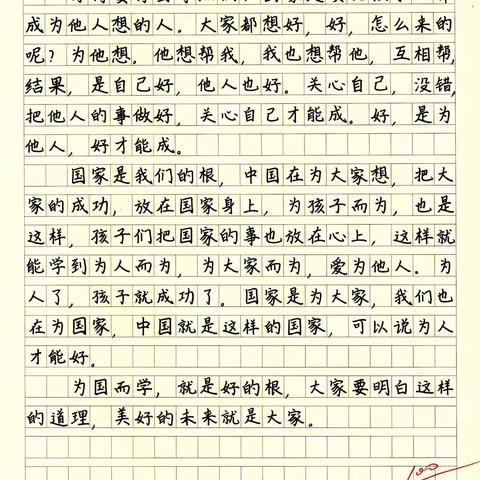 成为他人想的人。大家都想好，好，怎么来的
呢？为他想。他想帮我，我也想帮他，互相帮，
结果，是自己好，他人也好。关心自己，没错，
把他人的事做好，关心自己才能成。好，是为
他人，好才能成。
国家是我们的根，中国在为大家想，把大
家的成功，放在国家身上，为孩子而为，也是
这样，孩子们把国家的事也放在心上，这样就
能学到为人而为，为大家而为，爱为他人。为
人了，孩子就成功了。国家是为大家，我们也
在为国家，中国就是这样的国家，可以说为人
才能好。
为国而学，就是好的根，大家要明白这样
的道理，美好的未来就是大家。
100